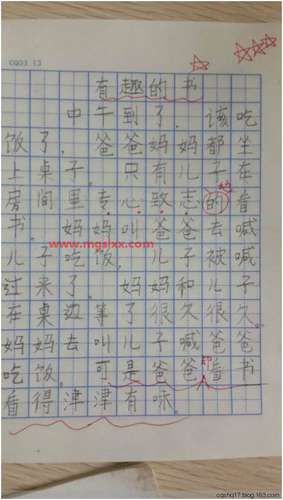 CG03 13
有趣的书
中午到了，该吃
饭了，爸爸妈妈都坐
上桌子。只有儿子在
房间里专心致志的看
书。妈妈叫爸爸去喊
www.mgslxx.com
儿子吃饭，儿子被喊
过来了。妈妈和儿子
在桌边等了很久很久。
妈妈去叫儿子喊爸爸
吃饭。可是爸爸看书
看得津津有味。
cqshq17.blog.163.com